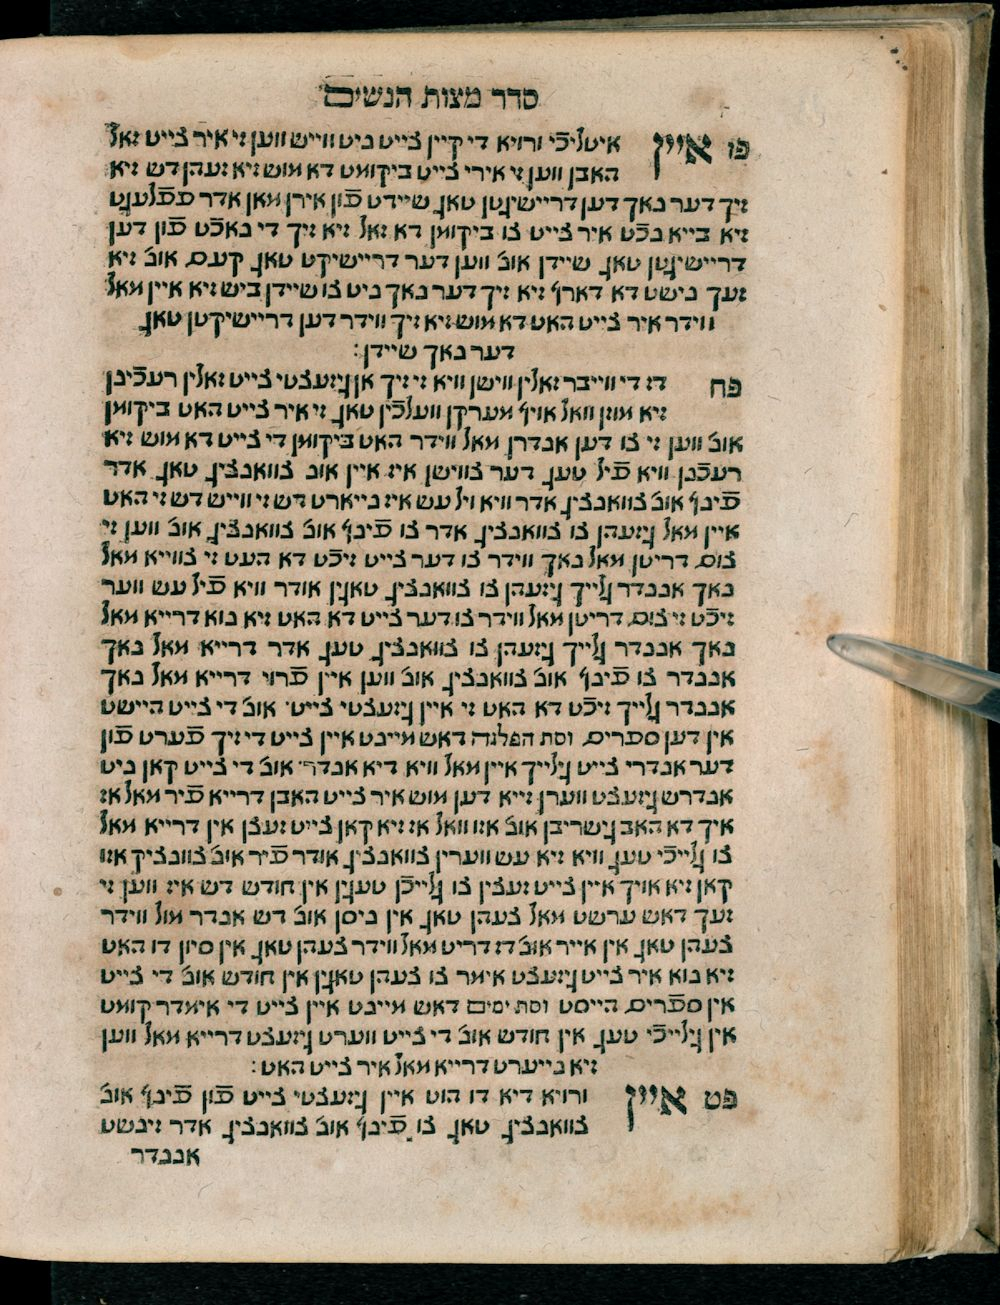 סדר מצות הנשים
פו איין איטליכֿי ורויא די קיין צייט ניט ווייש ווען זי איר צייט זאל
האבן ווען זי אירי צייט ביקומט דא מוש זיא זעהן דש זיא
זיך דער נאך דען דריישיגטן טאג שיידט פֿון אירן מאן אדר פֿפֿלעגט
זיא בייא נכֿט איר צייט צו ביקומן דא זאל זיא זיך די נאכֿט פֿון דען
דריישיגטן טאג שיידן אונ' ווען דער דריישיקט טאג קעם אונ' זיא
זעך נישט דא דארף זיא זיך דער נאך ניט צו שיידן ביש זיא איין מאל
ווידר איר צייט האט דא מוש זיא זיך ווידר דען דריישיקטן טאג
דער נאך שיידן:
פח דז די ווייבר זאלין ווישן וויא זי זיך אן גיזעצטי צייט זאלין רעכֿינן
זיא מוזן וואל אויף מערקן וועלכֿין טאג זי איר צייט האט ביקומן
אונ' ווען זי צו דען אנדרן מאל ווידר האט ביקומן די צייט דא מוש זיא
רעכֿנן וויא פֿיל טעג דער צווישן איז איין אונ' צוואנציג טאג אדר
פֿינף אונ' צוואנציג אדר וויא ויל עש איז נייארט דש זי ווייש דש זי האט
איין מאל גיזעהן צו צוואנציג אדר צו פֿינף אונ' צוואנציג אונ' ווען זי
צום דריטן מאל נאך ווידר צו דער צייט זיכֿט דא העט זי צווייא מאל
נאך אננדר גלייך גיזעהן צו צוואנציג טאגין אודר וויא פֿיל עש ווער
זיכֿט זי צום דריטן מאל ווידר צו דער צייט דא האט זיא נוא דרייא מאל
נאך אננדר גלייך גיזעהן צו צוואנציג טעג אדר דרייא מאל נאך
אננדר צו פֿינף אונ' צוואנציג אונ' ווען איין פֿרוי דרייא מאל נאך
אננדר גלייך זיכֿט דא האט זי איין גיזעצטי צייט' אונ' די צייט היישט
אין דען ספרים וסת הפלגה דאש מיינט איין צייט די זיך פֿערט פֿון
דער אנדרי צייט גילייך איין מאל וויא דיא אנדר' אונ' די צייט קאן ניט
אנדרש גיזעצט ווערן זייא דען מוש איר צייט האבן דרייא פֿיר מאל אז
איך דא האב גישריבן אונ' אזו וואל אז זיא קאן צייט זעצן אין דרייא מאל
צו גלייכֿי טעג וויא זיא עש ווערין צוואנציג אודר פֿיר אונ' צוונציק אזו
קאן זיא אויך איין צייט זעצין צו גלייכֿן טעגין אין חודש דש איז ווען זי
זעך דאש ערשט מאל צעהן טאג אין ניסן אונ' דש אנדר מול ווידר
צעהן טאג אין אייר אונ' דז דריט מאל ווידר צעהן טאג אין סיון דו האט
זיא נוא איר צייט גיזעצט אימר צו צעהן טאגין אין חודש אונ' די צייט
אין ספרים הייסט וסת ימים דאש מיינט איין צייט די אימדר קומט
אין גילייכֿי טעג אין חודש אונ' די צייט ווערט גיזעצט דרייא מאל ווען
זיא נייערט דרייא מאל איר צייט האט:
פט איין ורויא דיא דו הוט איין גיזעצטי צייט פֿון פֿינף אונ'
צוואנציג טאג צו פֿינף אונ' צוואנציג אדר זינשט
אננדר